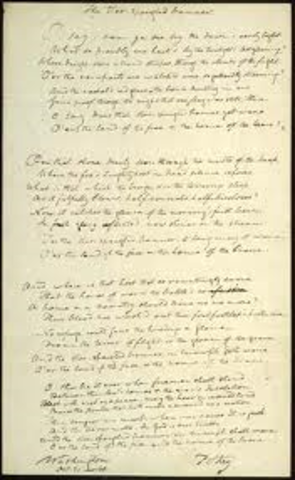 The Star-spangled banner
O say! can you see by the dawn's early light
What so proudly we hail'd by the twilight's last gleaming?
Whose bright stars & broad stripes through the clouds of the fight
O'er the ramparts we watch'd were so gallantly streaming?
And the rocket's red glare the bombs bursting in air
Gave proof through the night that our flag was still there
O say does that star-spangled banner yet wave
O'er the land of the free & the home of the brave?
On that shore dimly seen through the mists of the deep
Where the foe's haughty host in dread silence reposes
What is that which the breeze o'er the towering steep
As it fitfully blows half conceals half discloses?
Now it catches the gleam of the morning's first beam
In full glory reflected now shines on the stream
'Tis the star-spangled banner
O'er the land of the free & the home of the brave
And where is that host that so vauntingly swore
That the havoc of war & the battle's confusion
A home & a country should leave us no more?
Their blood has wash'd out their foul footsteps' pollution
No refuge could save the hireling & slave
From the terror of flight or the gloom of the grave
And the star-spangled banner in triumph doth wave
O'er the land of the free & the home of the brave
O thus be it ever when freemen shall stand
Between their lov'd homes & the war's desolation
And the star-spangled banner in triumph shall wave
O'er the land of the free and the home of the brave
Washington
F S Key